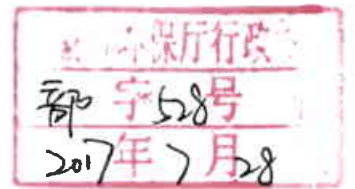 环保厅行政
部字528号
2017年7月28